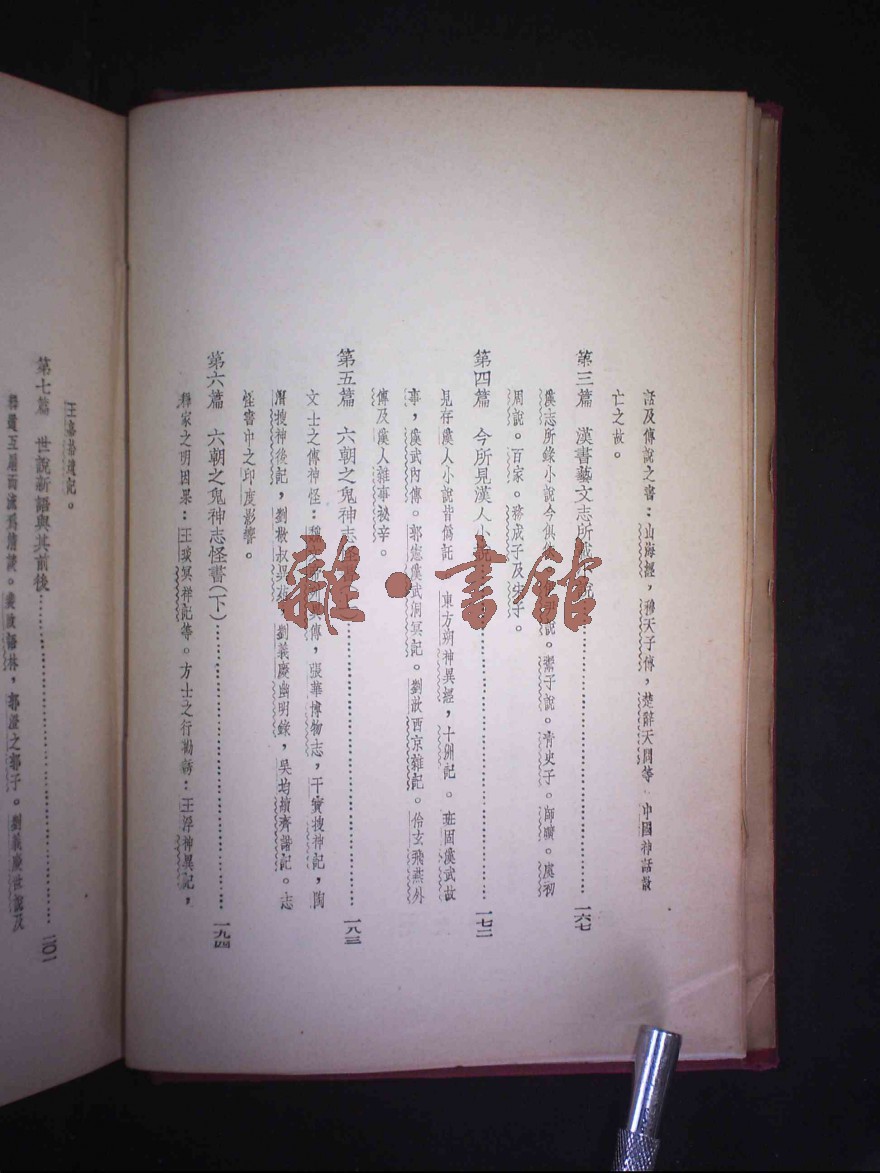 話及傳說之書：山海經，穆天子傳，楚辭天問等 中國神話散
亡之故。
第三篇 漢書藝文志所載小說……一六七
漢志所錄小說今俱 說。鬻子說。青史子。師曠。虞初
周說。百家。務成子及宋子。
第四篇 今所見漢人小說……一七二
見存漢人小說皆僞託 東方朔神異經，十洲記。班固漢武故
事，漢武內傳。郭憲漢武洞冥記。劉歆西京雜記。伶玄飛燕外
傳及漢人雜事祕辛。
第五篇 六朝之鬼神志怪 ……一八三
文士之傳神怪：魏 傳，張華博物志，干寶搜神記，陶
潛搜神後記，劉敬叔異苑，劉義慶幽明錄，吳均續齊諧記。志
怪書中之印度影響。
第六篇 六朝之鬼神志怪書（下）……一九四
釋家之明因果：王琰冥祥記等。方士之行勸誘：王浮神異記，
王嘉拾遺記。
第七篇 世說新語與其前後……二〇一
釋道互扇而流爲清談。裴啟語林，郭澄之郭子。劉義慶世說及
雜·書館